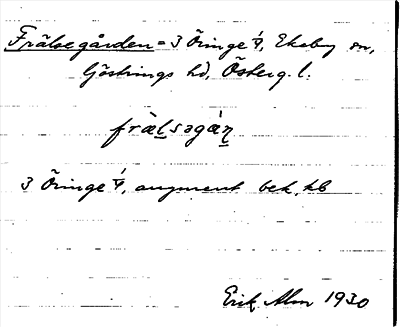 Frälsegården = 3 Öringe 1/4, Ekeby sn,
Göstrings hd, Österg. l.
frälsəgàṇ
3 Öringe 1/4, augment bek, kb
Erik Alm 1930